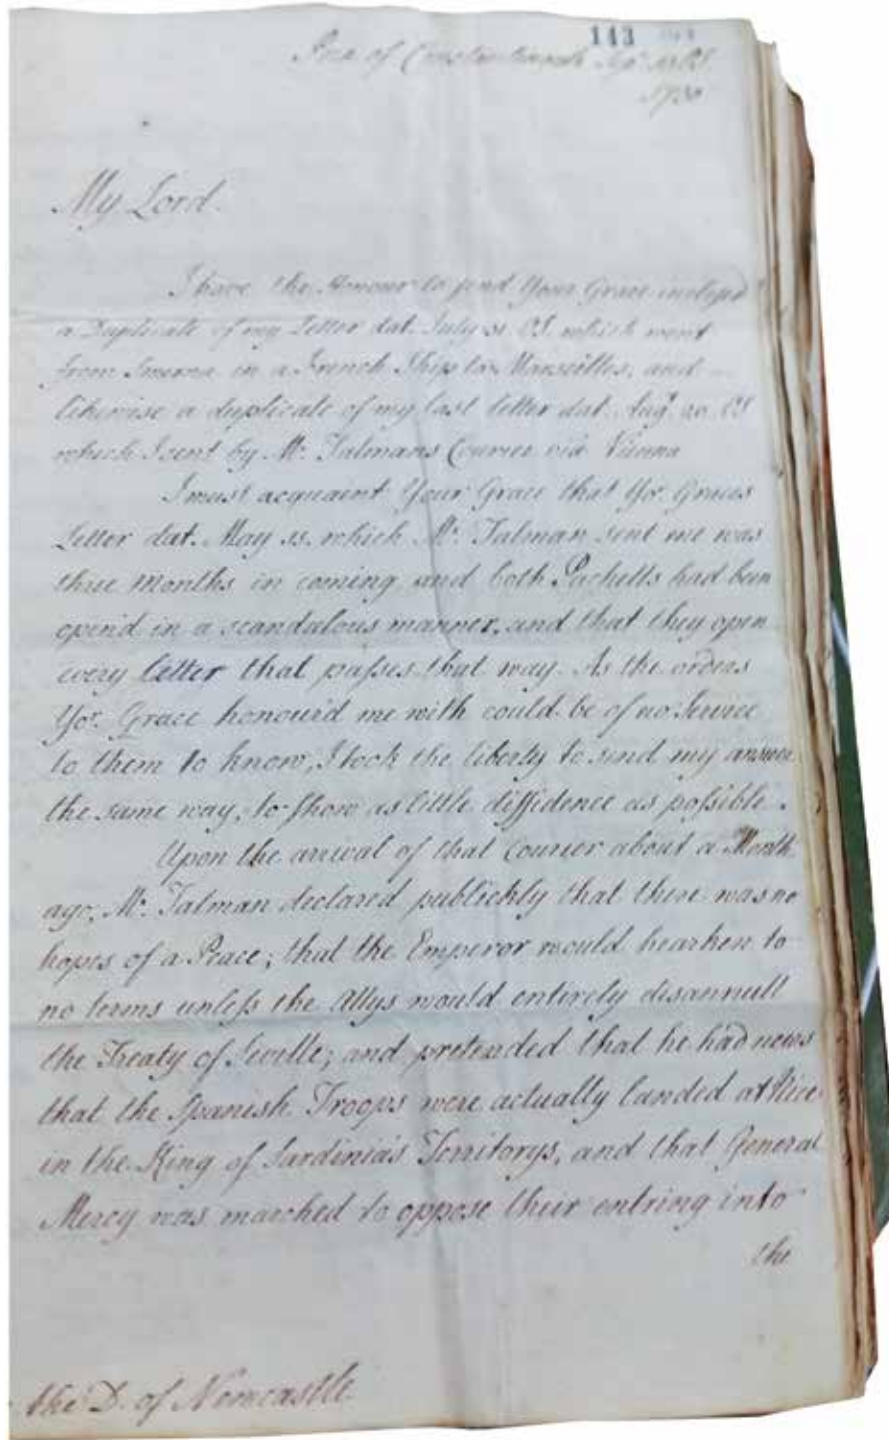 143
Pera of Constantinople Sepr. OS.
1730
My Lord.
I have the Honour to send Your Grace inclos'd
a Duplicate of my Letter dat. July 31. OS. which went
from Smirna in a French Ship to Marseilles, and
likewise a duplicate of my last letter dat. Augt. 20. OS
which I sent by Mr. Talmans Courier via Vienna
I must acquaint Your Grace that Yor. Graces
Letter dat. May 15. which Mr. Talman sent me was
three Months in coming, and both Packetts had been
open'd in a scandalous manner, and that they open
every letter that passes that way. As the orders
Yor. Grace honour'd me with could be of no Service
to them to know, I took the liberty to send my answer
the same way, to show as little diffidence as possible.
Upon the arrival of that Courier about a Month
ago, Mr. Talman declared publickly that there was no
hopes of a Peace; that the Emperor would hearken to
no terms unless the Allys would entirely disannull
the Treaty of Seville; and pretended that he had news
that the Spanish Troops were actually landed at Nice
in the King of Sardinia's Territorys, and that General
Mercy was marched to oppose their entring into
the
the D. of Newcastle